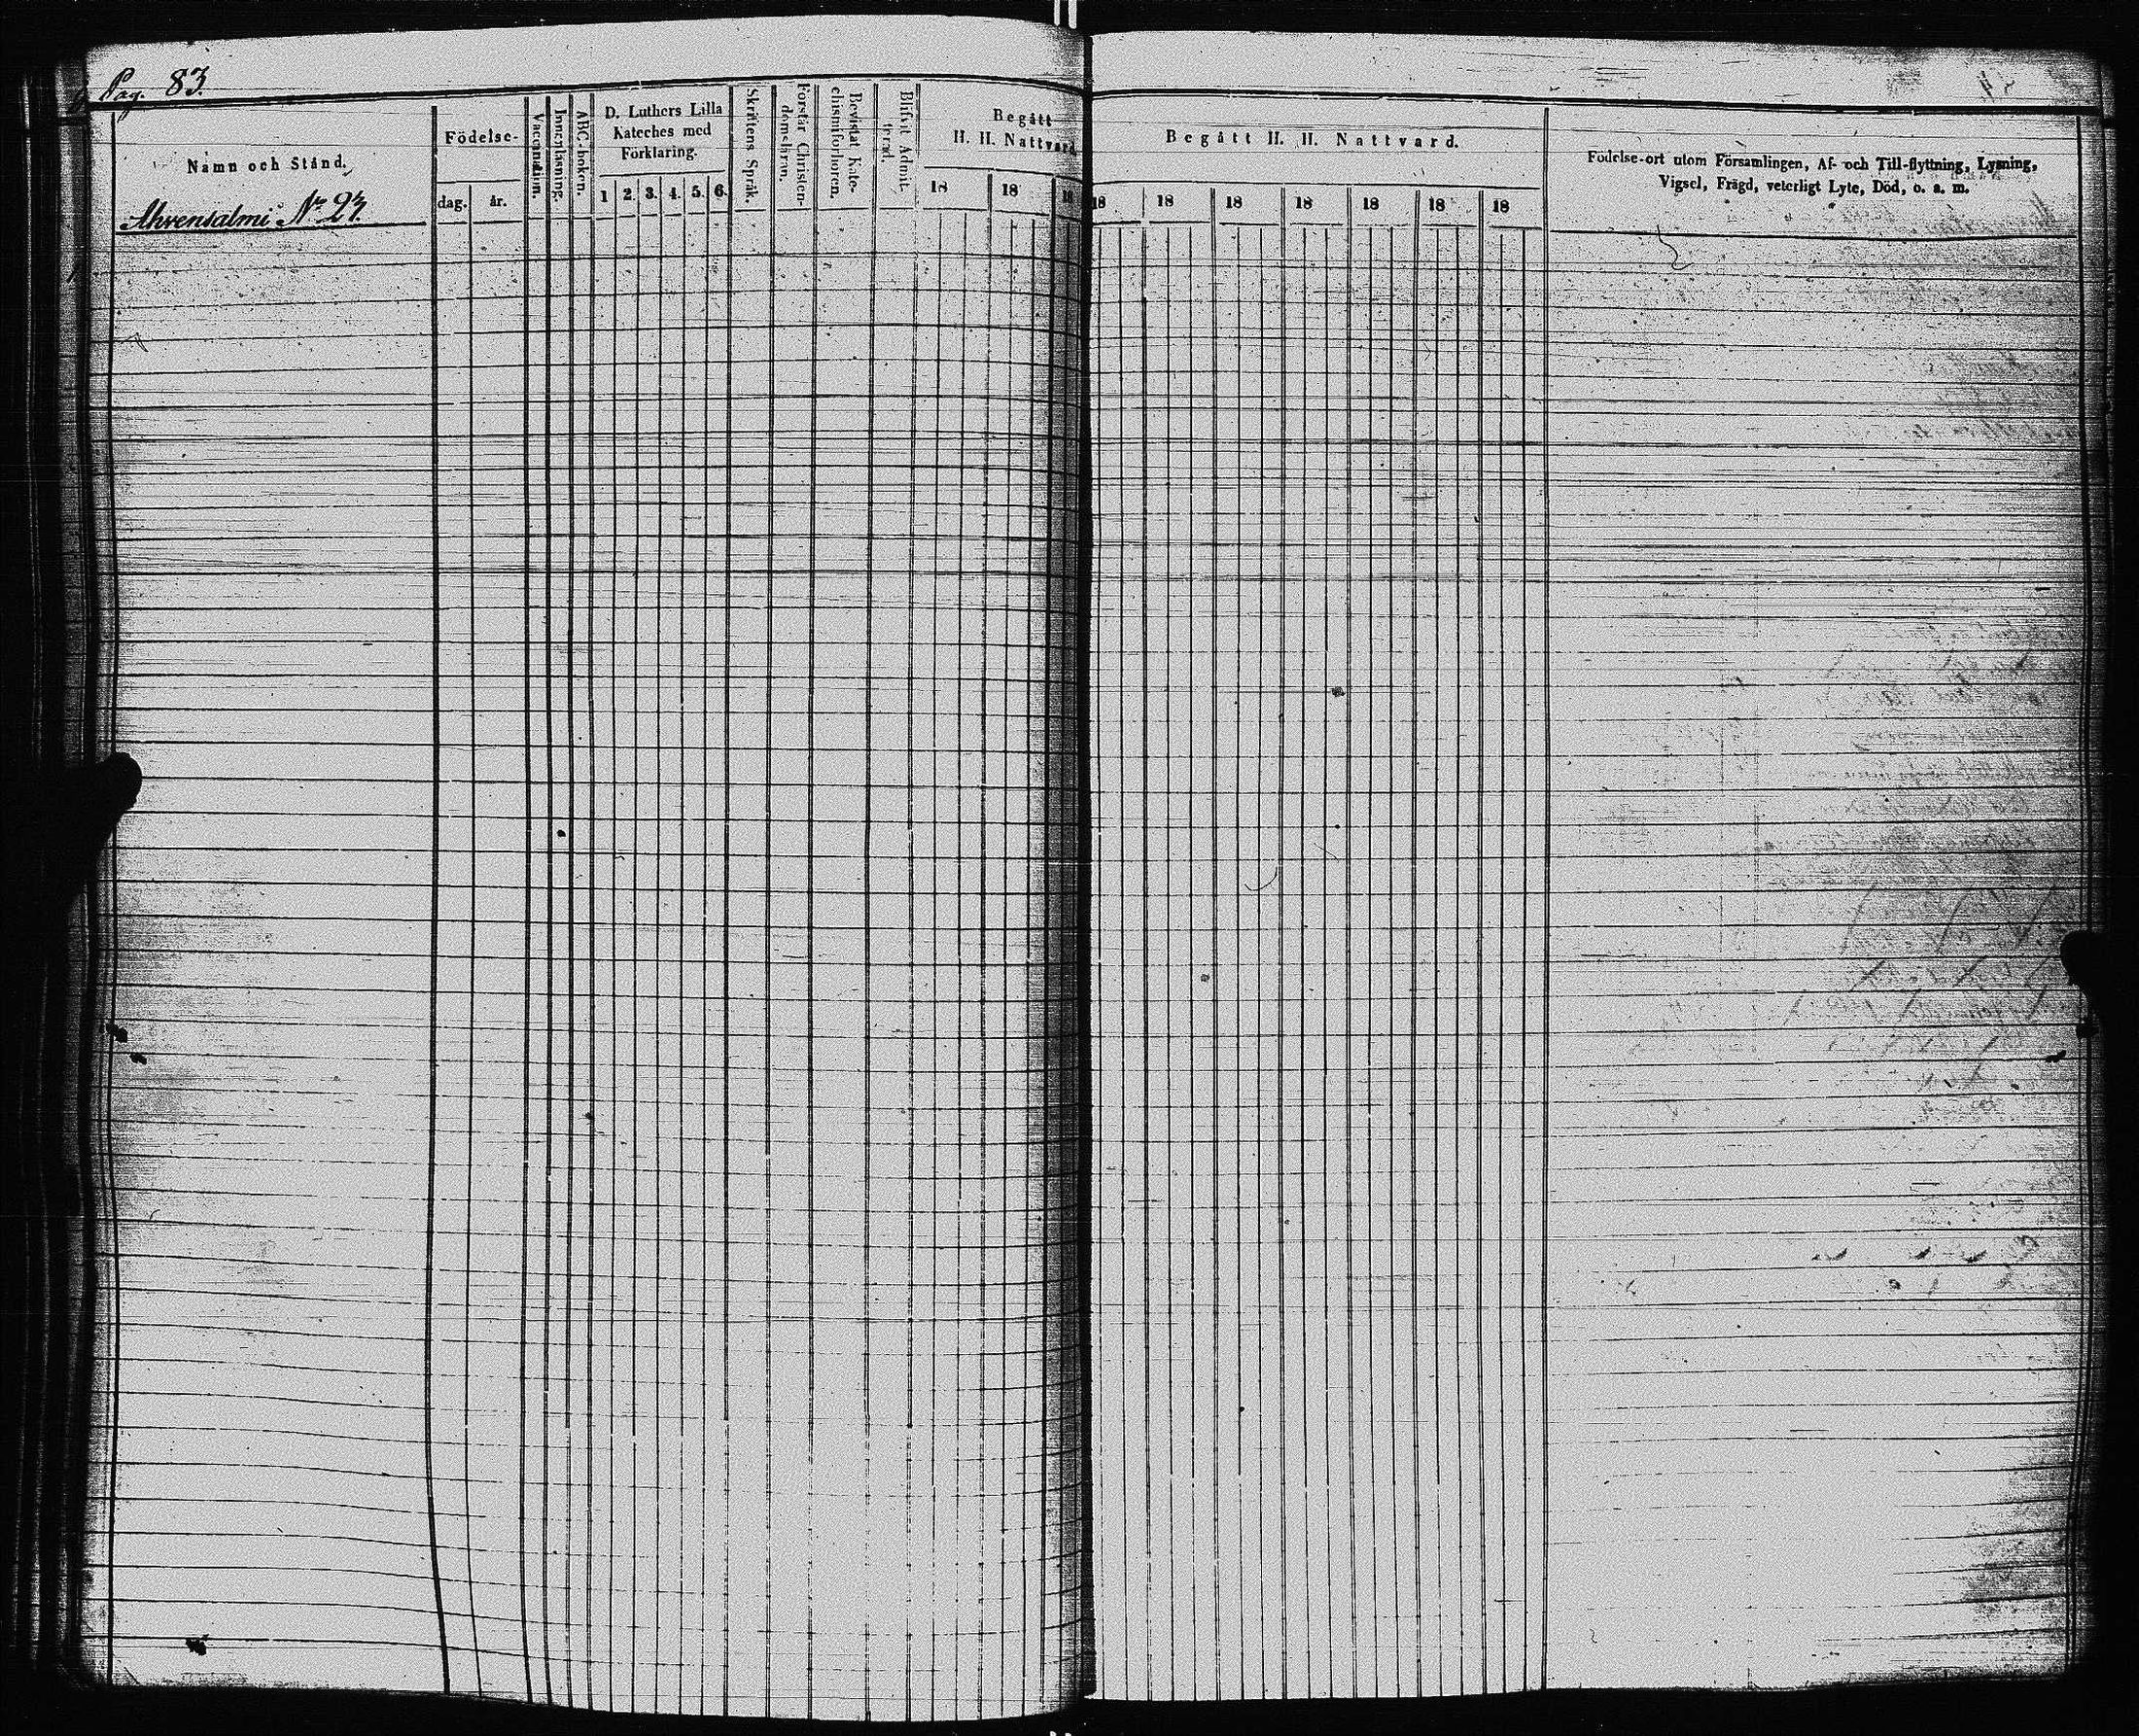 Pag. 83.
Namn och Stånd.
Ahrensalmi No 23.
Födelse-
dag. år.
Vaccination.
Innenläsning.
ABC-boken.
D. Luthers Lilla
Kateches med
Förklaring.
1 2. 3. 4. 5. 6.
Skriftens Språk.
Förstår Christen-
domsläran.
Bevistat Kate-
chismiförhören.
Blifvit Admit-
terad.
Begått
H. H. Nattvard
18 18 18
Begått H. H. Nattvard.
18 18 18 18 18 18 18
Födelse-ort utom Församlingen, Af- och Till-flyttning, Lysning,
Vigsel, Frägd, veterligt Lyte, Död, o. s. m.